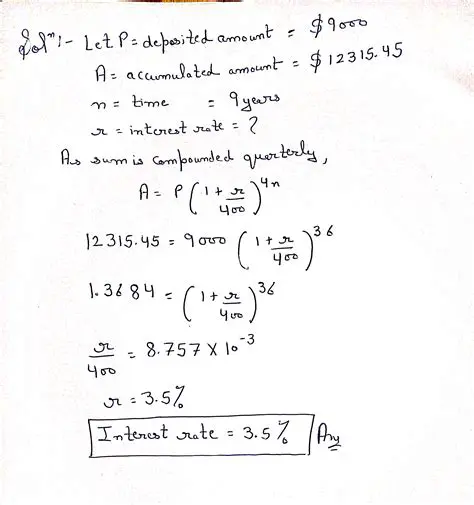 Solⁿ:- Let P = deposited amount = $9000
A = accumulated amount = $12315.45
n = time = 9 years
r = interest rate = ?
As sum is compounded quarterly,
A = P (1 + r/400)^4n
12315.45 = 9000 (1 + r/400)^36
1.3684 = (1 + r/400)^36
r/400 = 8.757 × 10^-3
r = 3.5%
Interest rate = 3.5% Ans